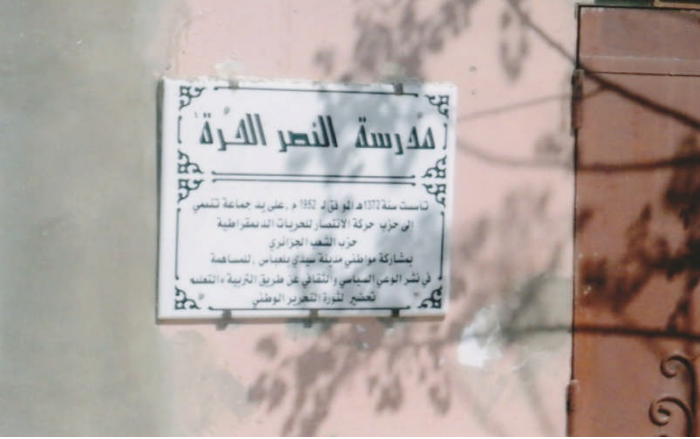 مدرسة النصر الحرة
تأسست سنة 1372هـ الموافق لـ 1952 م , على يد جماعة تنتمي
إلى حزب حركة الانتصار للحريات الديمقراطية
حزب الشعب الجزائري
بمشاركة مواطني مدينة سيدي بلعباس , للمساهمة
في نشر الوعي السياسي والثقافي عن طريق التربية والتعليم
تحضير لثورة التحرير الوطني